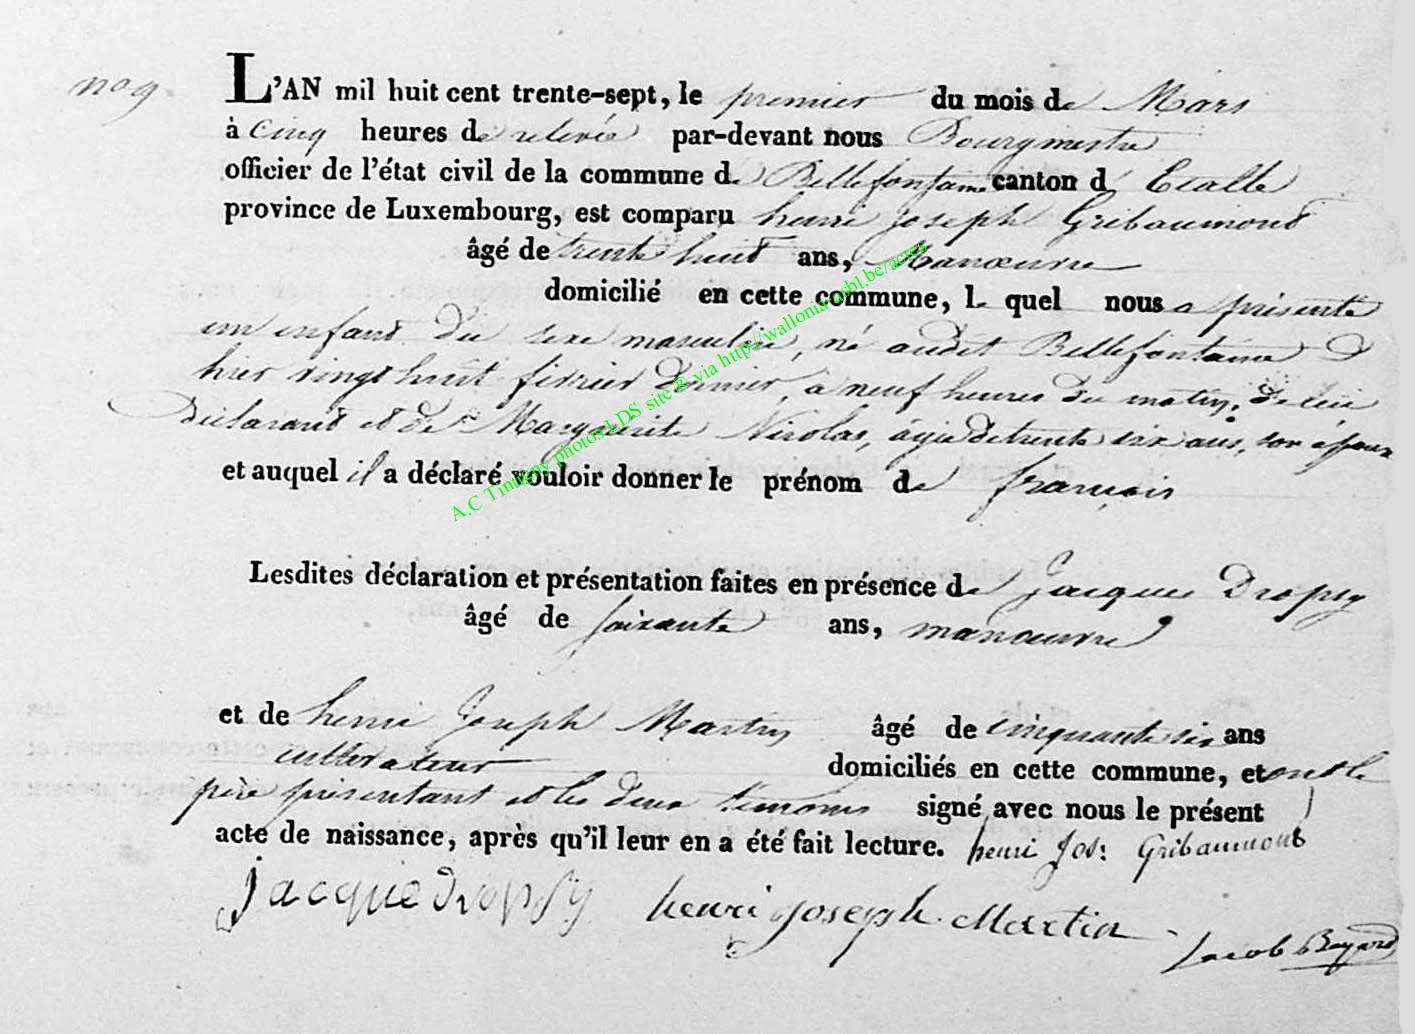 no 9.
L'AN mil huit cent trente-sept, le premier du mois de Mars
à cinq heures de relevée par-devant nous Bourgmestre
officier de l'état civil de la commune de Bellefontaine canton d'Etalle
province de Luxembourg, est comparu henri joseph Gribaumont
âgé de trente huit ans, Manœuvre
domicilié en cette commune, le quel nous a présenté
un enfant du sexe masculin, né audit Bellefontaine
hier vingt huit février dernier, à neuf heures du matin, de lui
déclarant et de Marguerite Nicolas, âgée de trente six ans, son épouse
et auquel il a déclaré vouloir donner le prénom de françois
Lesdites déclaration et présentation faites en présence de Jacques Dropsy
âgé de soixante ans, manœuvre
et de henri Joseph Martin âgé de cinquante six ans
cultivateur domiciliés en cette commune, et ont le
père présentant et les deux témoins signé avec nous le présent
acte de naissance, après qu'il leur en a été fait lecture. henri Jos: Gribaumont
Jacque dropsy henri joseph Martin
Jacob Bayard
A.C Tintigny photos LDS site © via http://wallonia-asbl.be/actes